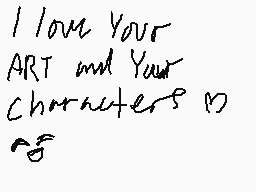 I love Your
ART and Your
characters ♡